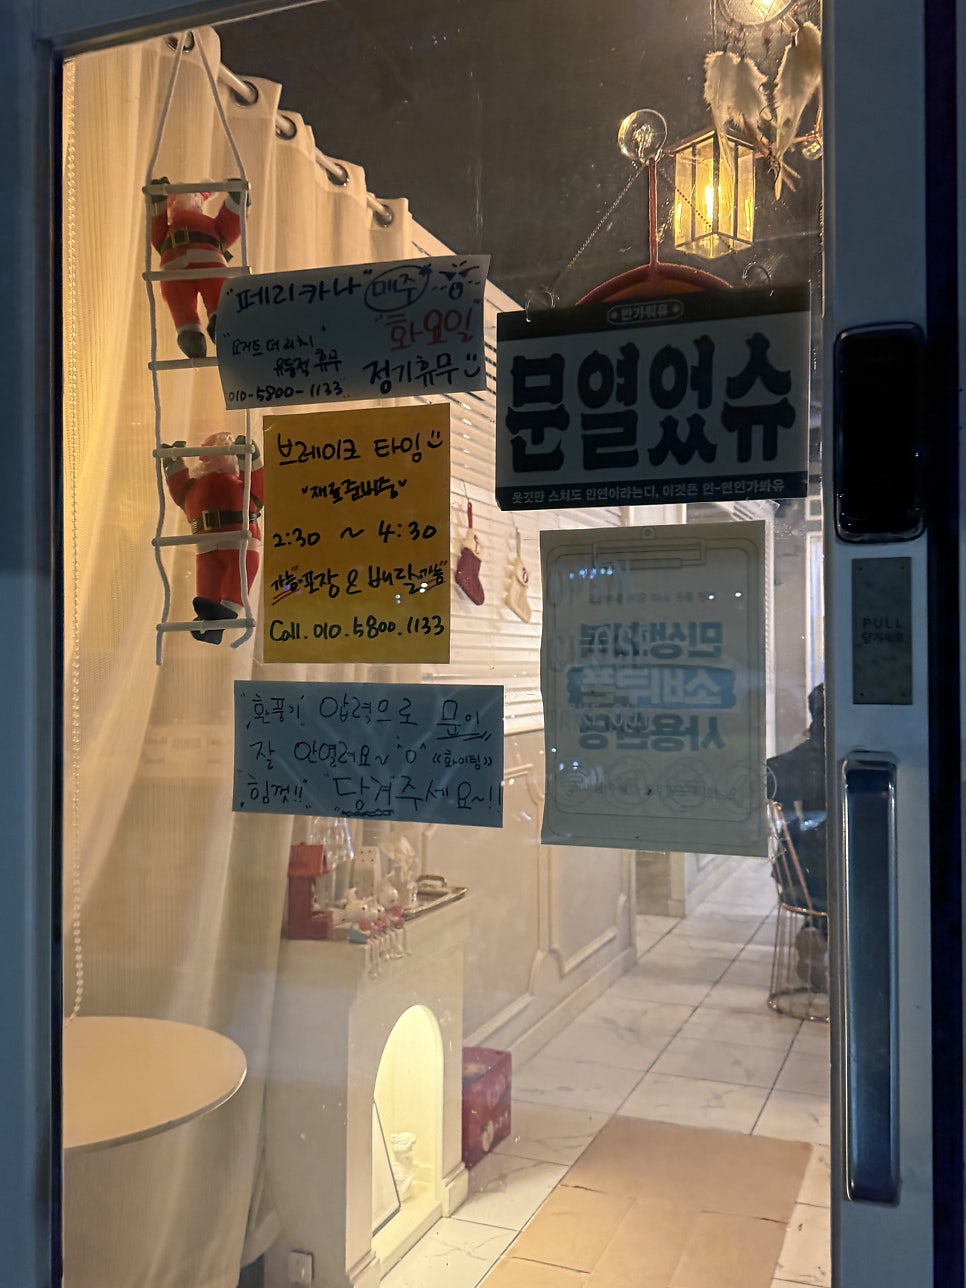 "페리카나" 매주
"화요일"
"요거트퍼퓸치
유동적 휴무
정기휴무
010-5800-1133
브레이크 타임
"재료준비중"
2:30 ~ 4:30
가능 포장 & 배달 가능
Call. 010. 5800. 1133
"환풍기" 압력으로 문이
잘 안열려요~^o^ <<화이팅>>
"힘껏!!" "당겨주세요~!!
반가워유
문열었슈
옷깃만 스쳐도 인연이라는디, 이것은 인-연인가봐유
민생회복
소비쿠폰
사용매장
PULL
당기세요